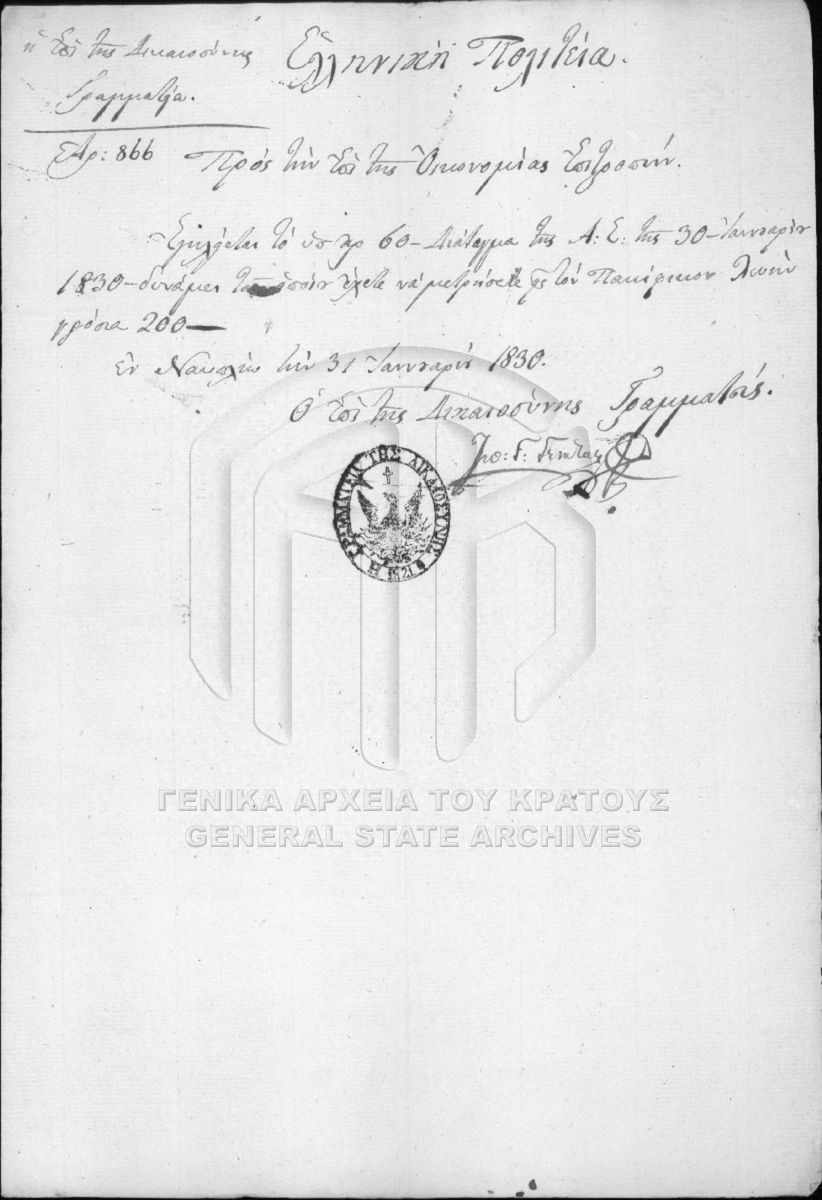 ἡ Ἐπὶ τῆς Δικαιοσύνης
Γραμματεία.
Ἑλληνικὴ Πολιτεία.
Ἀρ: 866
Πρὸς τὴν Ἐπὶ τῆς Οἰκονομίας Ἐπιτροπήν.
τὸ ὑπ ἀρ 60 Διάταγμα τῆς Α: Ε: τῆς 30 Ἰαννουαρίου
1830 δυνάμει τοῦ ὁποίου ἔχετε νὰ μετρήσετε τὸν
γρόσια 200
Ἐν Ναυπλίῳ τὴν 31 Ἰαννουαρίου 1830.
Ὁ Ἐπὶ τῆς Δικαιοσύνης Γραμματεύς.
Ἰω: Γ: Γενατᾶς
Η ΓΡΑΜΜΑΤΕΙΑ ΤΗΣ ΔΙΚΑΙΟΣΥΝΗΣ
1821
ΓΕΝΙΚΑ ΑΡΧΕΙΑ ΤΟΥ ΚΡΑΤΟΥΣ
GENERAL STATE ARCHIVES